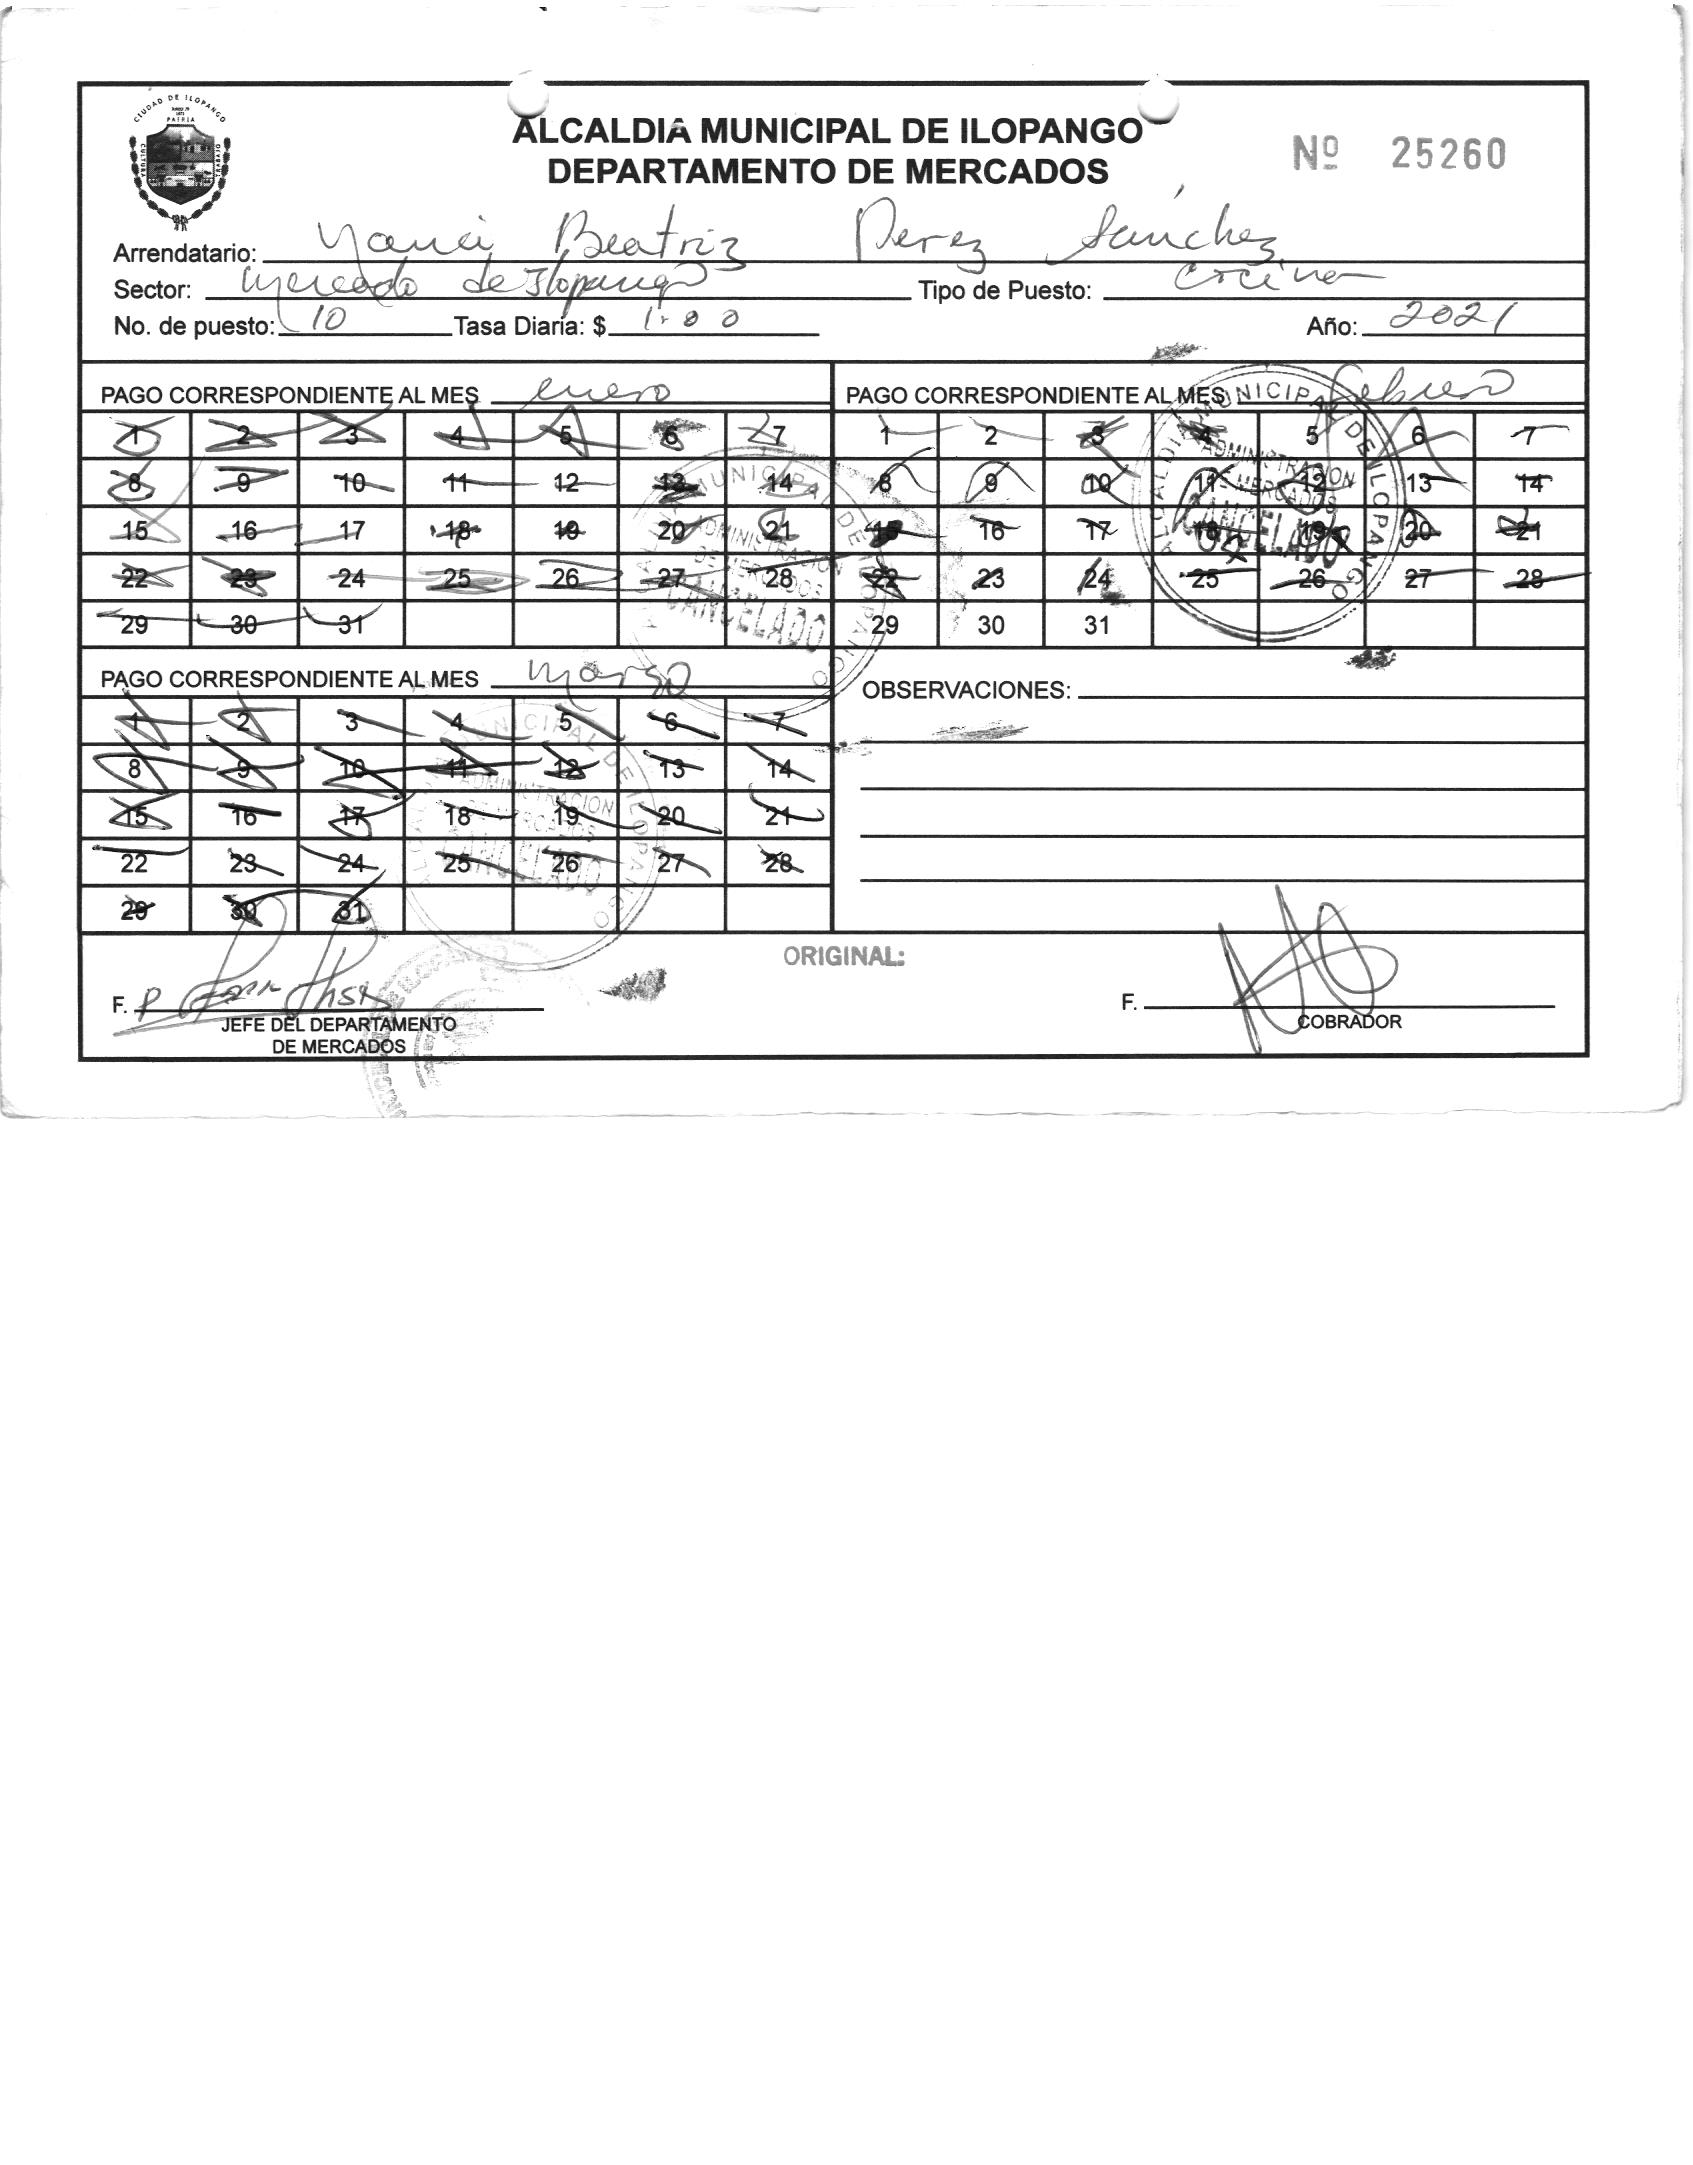 CIUDAD DE ILOPANGO
PATRIA
CULTURA
TRABAJO
ALCALDIA MUNICIPAL DE ILOPANGO
DEPARTAMENTO DE MERCADOS
Nº 25260
Arrendatario: Beatriz Perez Sánchez
Sector: mercado de Ilopango Tipo de Puesto: cocina
No. de puesto: 10 Tasa Diaria: $ 1.00 Año: 2021
PAGO CORRESPONDIENTE AL MES enero
1 2 3 4 5 6 7
8 9 10 11 12 13 14
15 16 17 18 19 20 21
22 23 24 25 26 27 28
29 30 31
PAGO CORRESPONDIENTE AL MES febrero
1 2 3 4 5 6 7
8 9 10 11 12 13 14
15 16 17 18 19 20 21
22 23 24 25 26 27 28
29 30 31
ALCALDIA MUNICIPAL DE ILOPANGO
ADMINISTRACION
DE MERCADOS
CANCELADO
PAGO CORRESPONDIENTE AL MES marzo
1 2 3 4 5 6 7
8 9 10 11 12 13 14
15 16 17 18 19 20 21
22 23 24 25 26 27 28
29 30 31
ALCALDIA MUNICIPAL DE ILOPANGO
ADMINISTRACION
DE MERCADOS
CANCELADO
OBSERVACIONES:
ALCALDIA MUNICIPAL DE ILOPANGO
ADMINISTRACION
DE MERCADOS
CANCELADO
ORIGINAL:
F.
JEFE DEL DEPARTAMENTO
DE MERCADOS
F.
COBRADOR